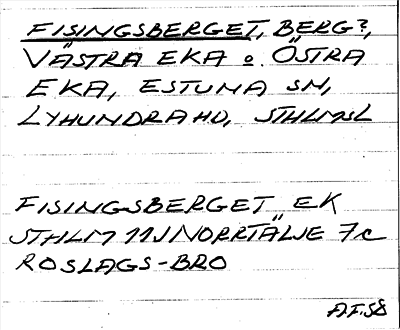 FISINGSBERGET, BERG?,
VÄSTRA EKA o. ÖSTRA
EKA, ESTUNA SN,
LYHUNDRA HD, STHLMSL
FISINGSBERGET EK
STHLM 11J NORRTÄLJE 7c
ROSLAGS-BRO
A.F.58